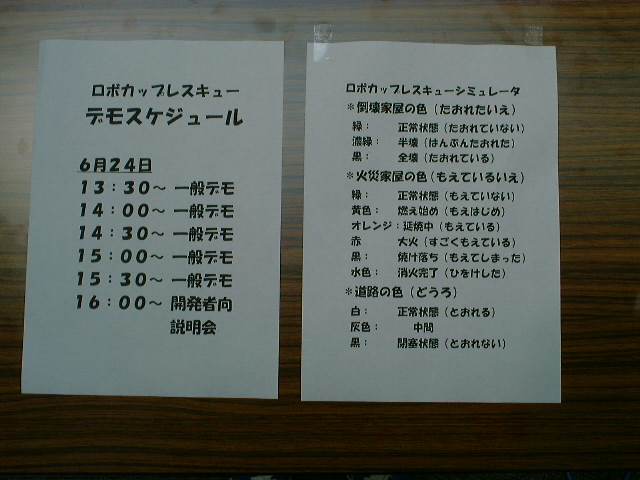 ロボカップレスキュー
デモスケジュール
6月24日
13:30～ 一般デモ
14:00～ 一般デモ
14:30～ 一般デモ
15:00～ 一般デモ
15:30～ 一般デモ
16:00～ 開発者向
説明会
ロボカップレスキューシミュレータ
*倒壊家屋の色(たおれたいえ)
緑: 正常状態(たおれていない)
濃緑: 半壊(はんぶんたおれた)
黒: 全壊(たおれている)
*火災家屋の色(もえているいえ)
緑: 正常状態(もえていない)
黄色: 燃え始め(もえはじめ)
オレンジ:延焼中(もえている)
赤 大火(すごくもえている)
黒: 焼け落ち(もえてしまった)
水色: 消火完了(ひをけした)
*道路の色(どうろ)
白: 正常状態(とおれる)
灰色: 中間
黒: 閉塞状態(とおれない)